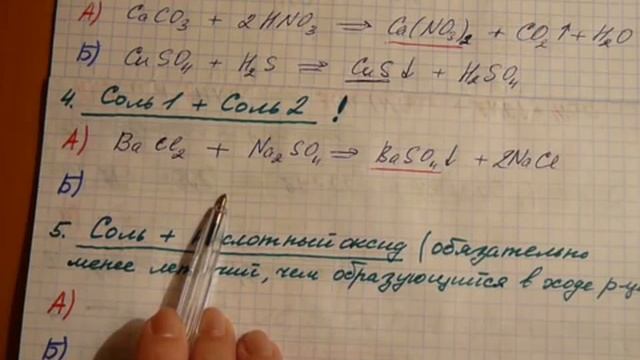 А) CaCO₃ + 2HNO₃ ⇒ Ca(NO₃)₂ + CO₂↑ + H₂O
Б) CuSO₄ + H₂S ⇒ CuS↓ + H₂SO₄
4. Соль 1 + Соль 2 !
А) BaCl₂ + Na₂SO₄ ⇒ BaSO₄↓ + 2NaCl
Б)
5. Соль + оксид (обязательно
менее чем образующийся в ходе р-ц
А)
Б)